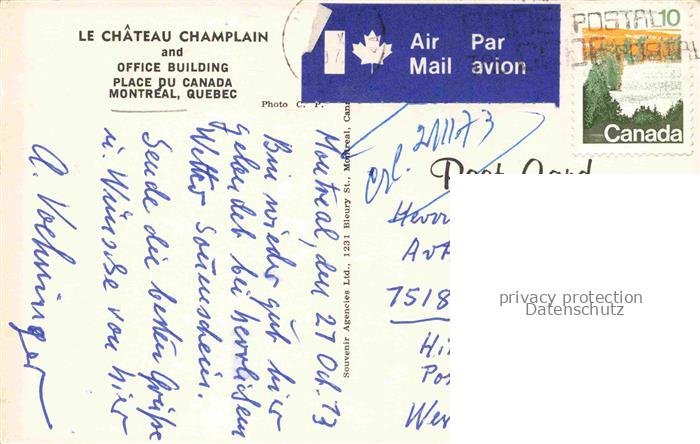 LE CHÂTEAU CHAMPLAIN
and
OFFICE BUILDING
PLACE DU CANADA
MONTRÉAL, QUEBEC
Photo C. P.
Air Par
Mail avion
POSTAL
10
Canada
Souvenir Agencies Ltd., 1231 Bleury St., Montreal, Can
Post Card
erl. 2/11.73
Montreal, den 27 Okt. 73
Bin wieder gut hier
gelandet bei herrlichem
Wetter Sonnenschein.
Sende die besten Grüße
u. Wünsche von hier
A.
Herrn
7518
privacy protection
Datenschutz